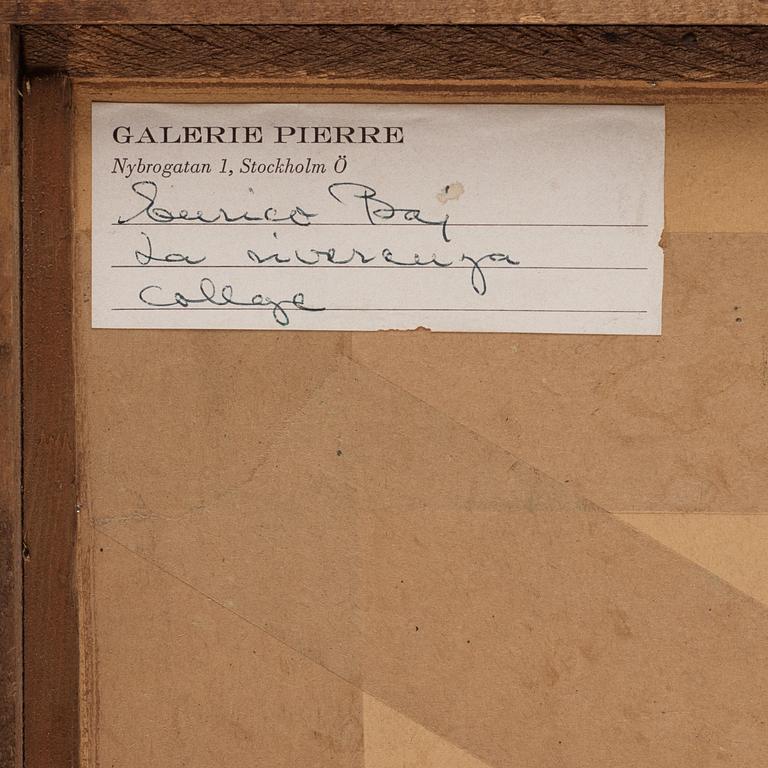 GALERIE PIERRE
Nybrogatan 1, Stockholm Ö
Enrico Baj
La riverenza
Collage